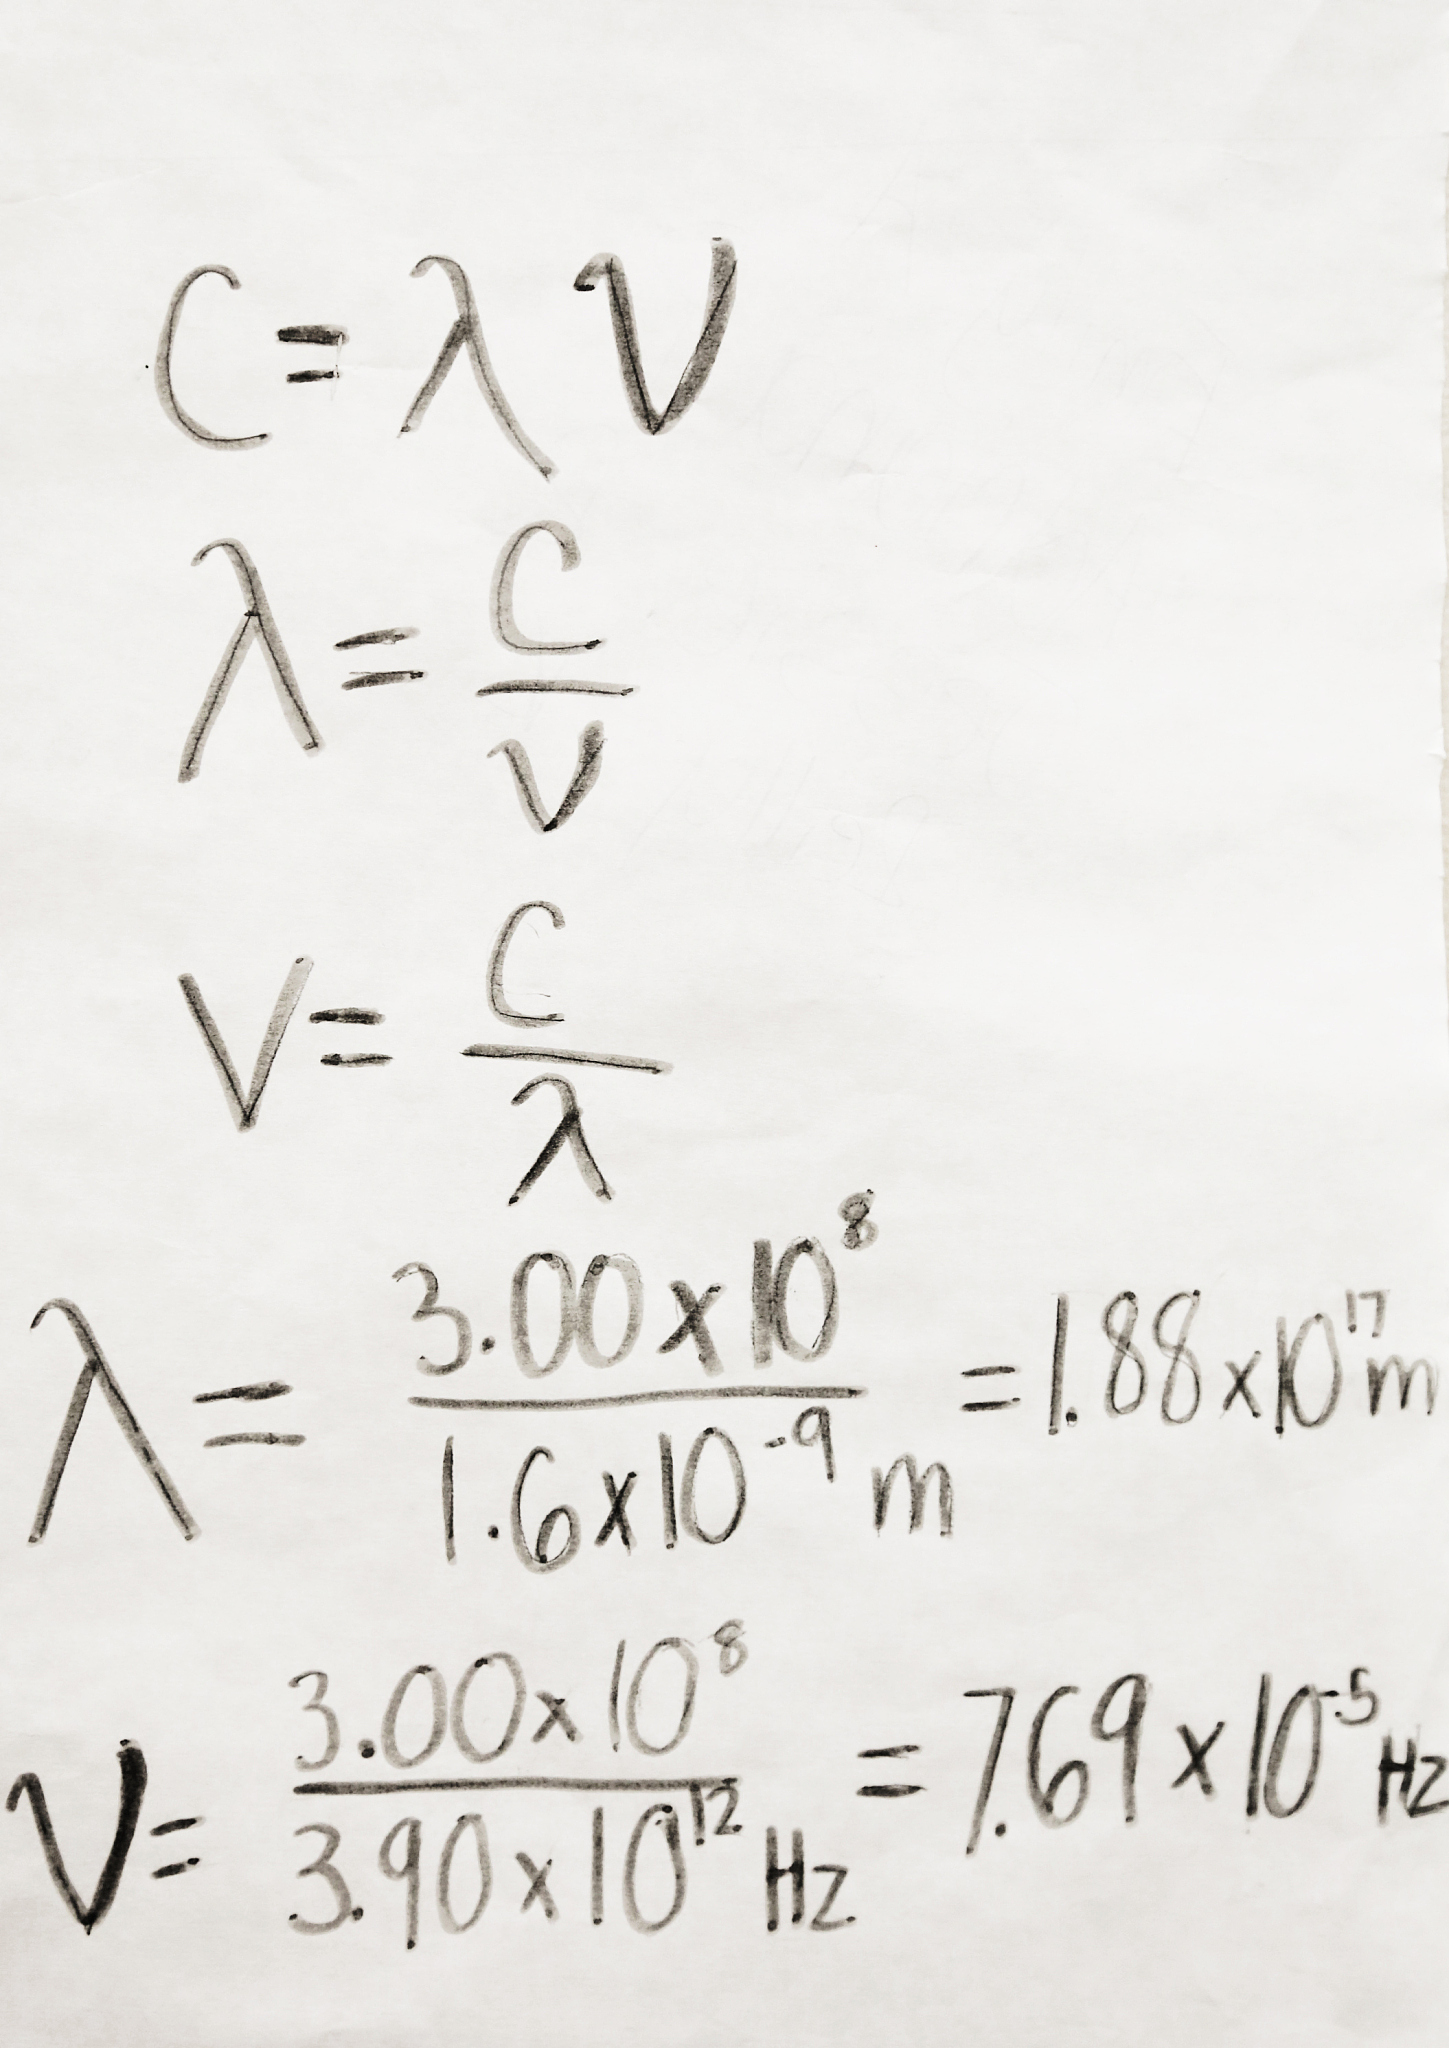 C = λν
λ = C/ν
V = C/λ
λ = 3.00 x 10⁸ / 1.6 x 10⁻⁹ m = 1.88 x 10¹⁷ m
ν = 3.00 x 10⁸ / 3.90 x 10¹² Hz = 7.69 x 10⁻⁵ Hz